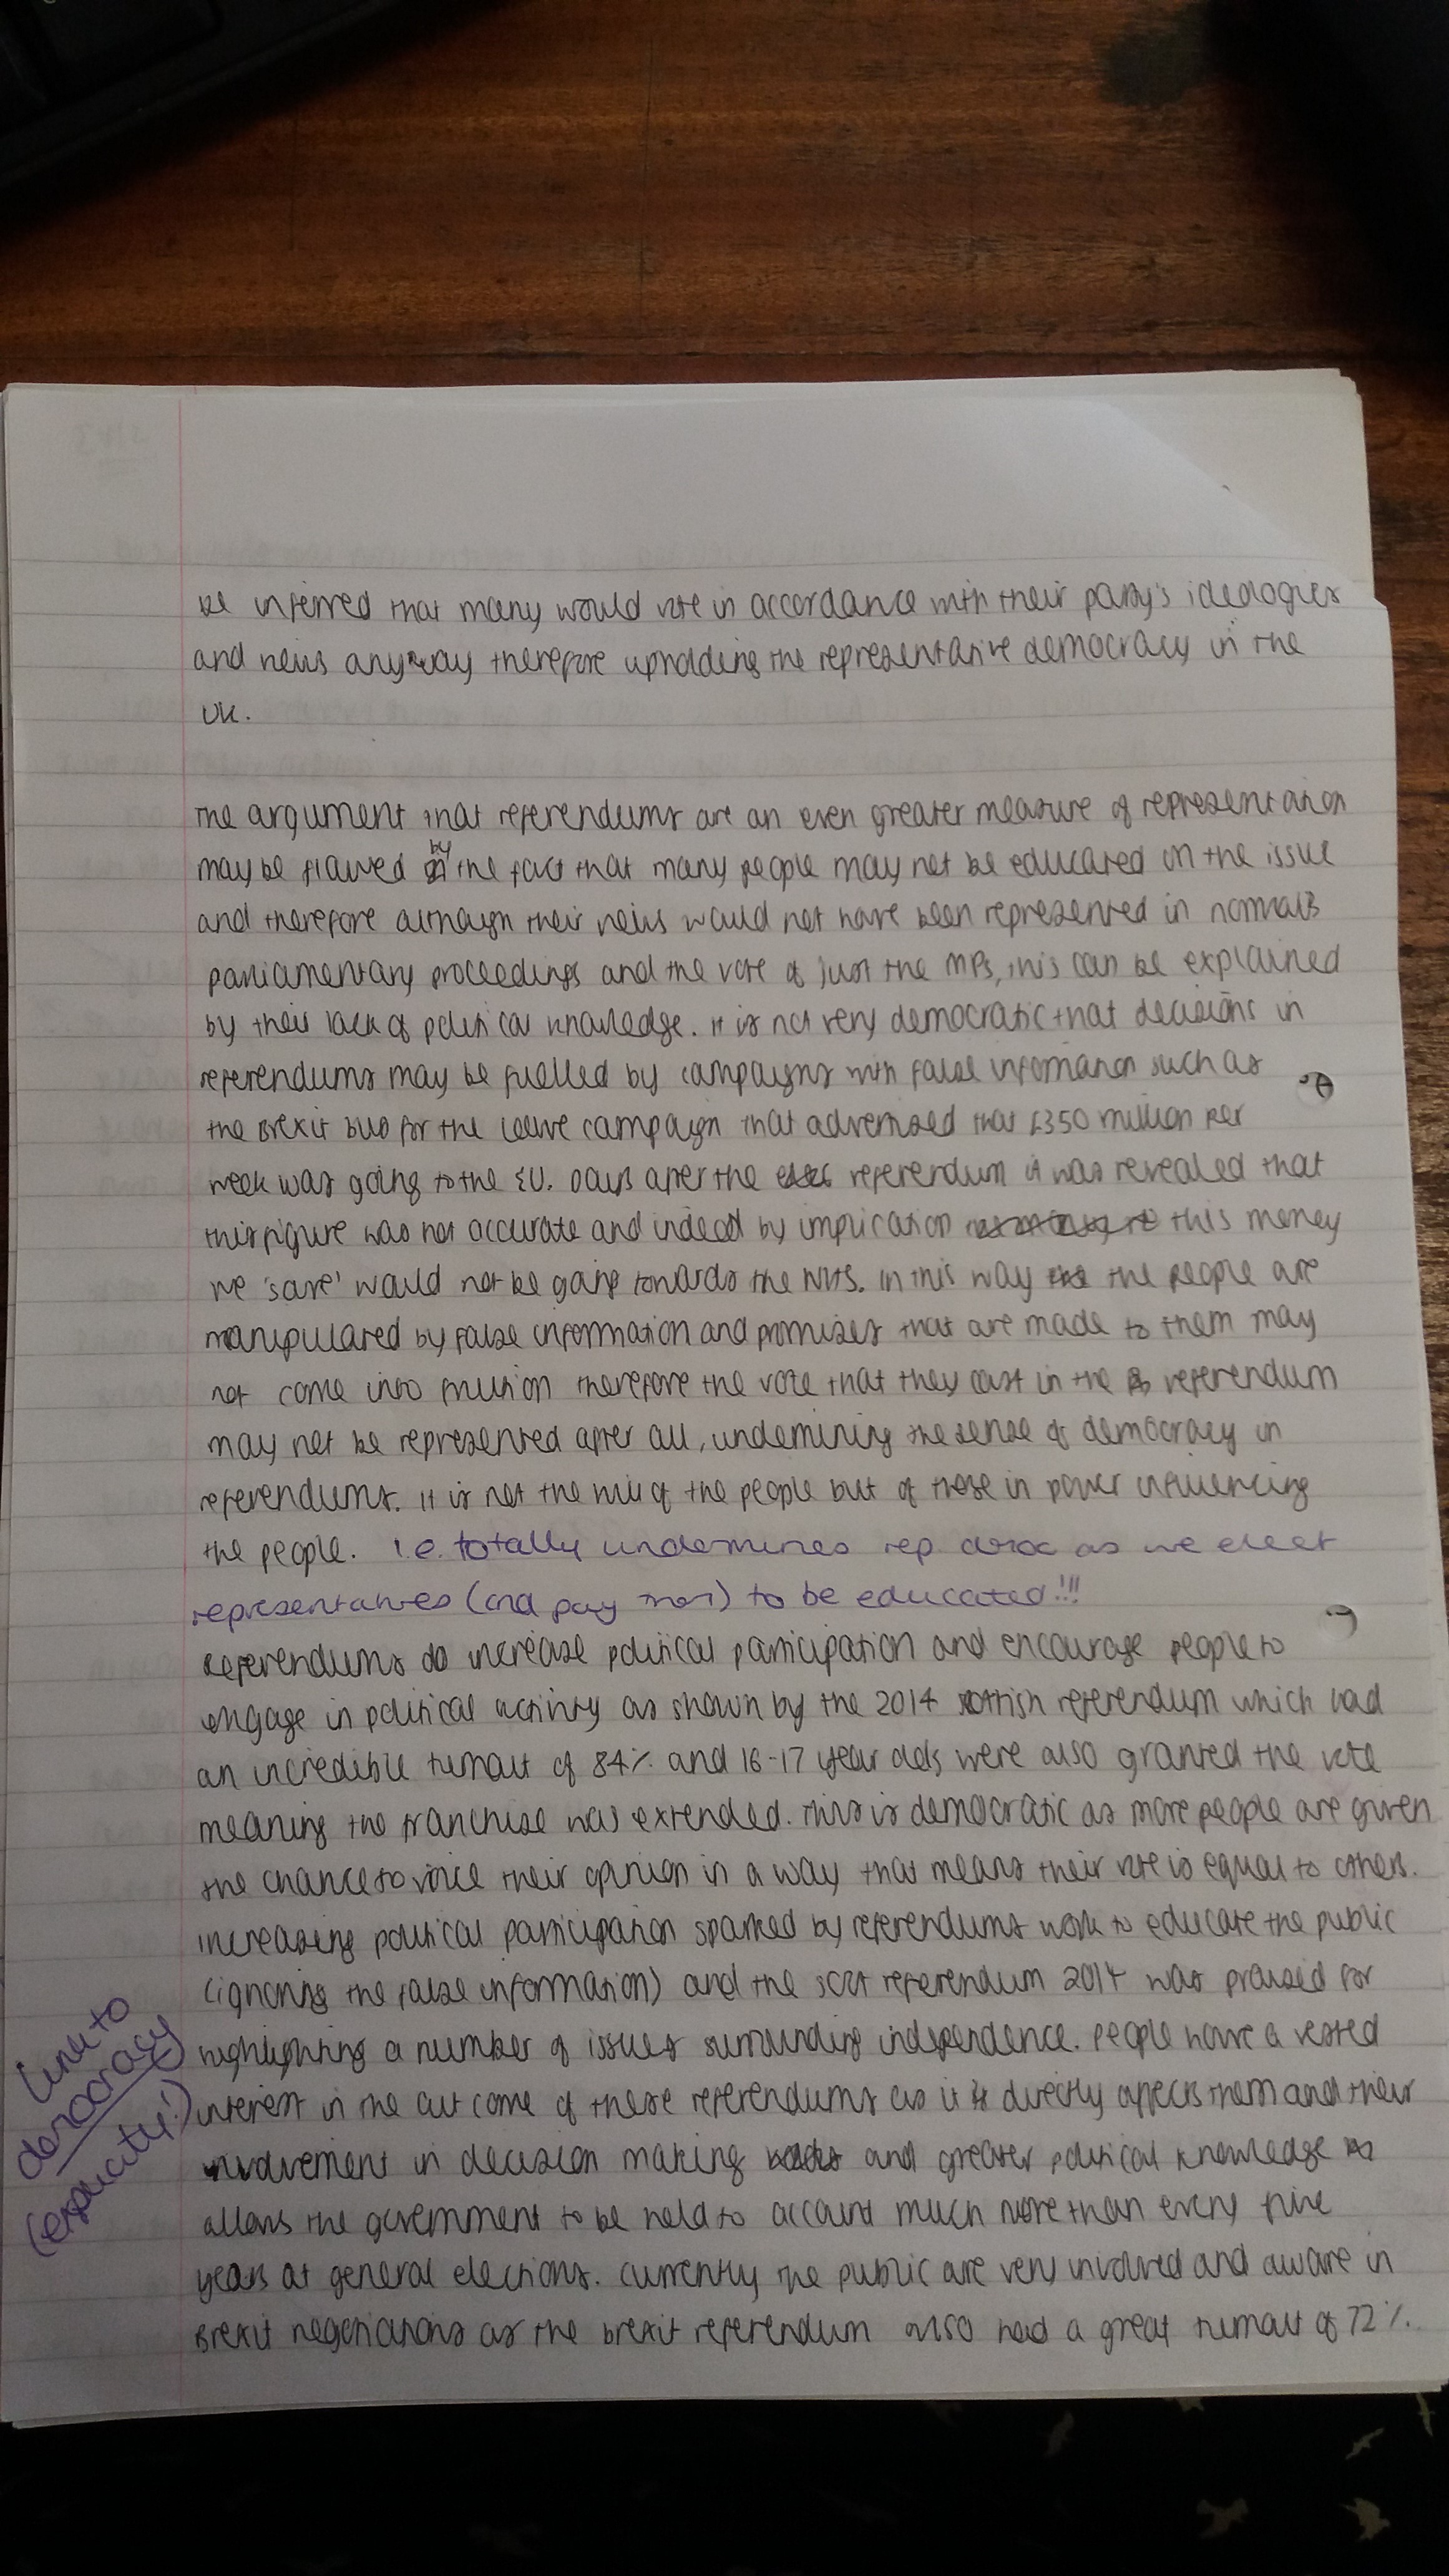 be inferred that many would vote in accordance with their party's ideologies
and views anyway therefore upholding the representative democracy in the
UK.
The argument that referendums are an even greater measure of representation
may be flawed by the fact that many people may not be educated on the issue
and therefore although their views would not have been represented in normal
parliamentary proceedings and the vote of just the MPs, this can be explained
by their lack of political knowledge. It is not very democratic that decisions in
referendums may be fuelled by campaigns with false information such as
the Brexit bus for the Leave campaign that advertised that £350 million per
week was going to the EU. Days after the referendum it was revealed that
this figure was not accurate and indeed by implication this money
we 'save' would not be going towards the NHS. In this way the people are
manipulated by false information and promises that are made to them may
not come into fruition therefore the vote that they cast in the referendum
may not be represented after all, undermining the sense of democracy in
referendums. It is not the will of the people but of those in power influencing
the people. i.e. totally undermines rep. as we elect
representatives (and pay them) to be educated!!!
Referendums do increase political participation and encourage people to
engage in political activity as shown by the 2014 Scottish referendum which had
an incredible turnout of 84% and 16-17 year olds were also granted the vote
meaning the franchise was extended. This is democratic as more people are given
the chance to voice their opinion in a way that means their vote is equal to others.
Increasing political participation sparked by referendums work to educate the public
(ignoring the false information) and the scot referendum 2014 was praised for
highlighting a number of issues surrounding independence. People have a vested
interest in the outcome of these referendums as it directly affects them and their
involvement in decision making and greater political knowledge
allows the government to be held to account much more than every five
years at general elections. Currently the public are very involved and aware in
Brexit negotiations as the brexit referendum also had a great turnout of 72%.
Link to
democracy
(explicity!)